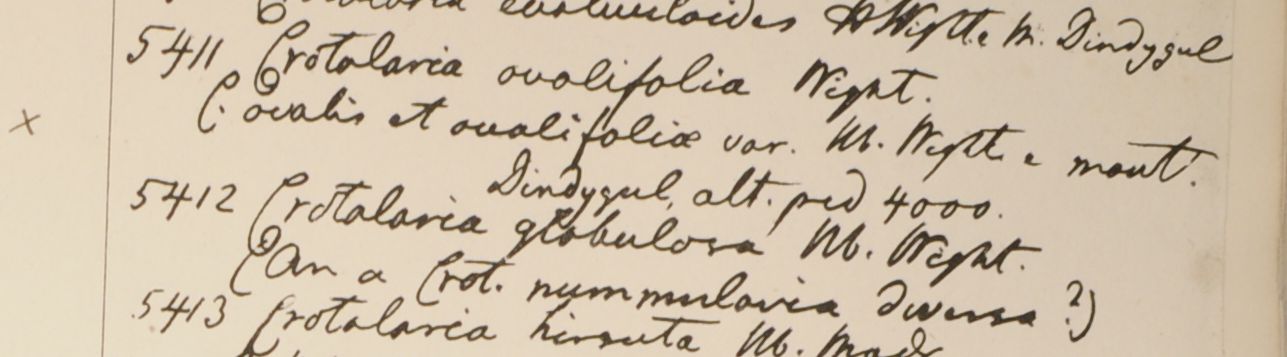 Crotalaria evolvuloides H Wight e m. Dindygul
5411 Crotalaria ovalifolia Wight.
C. ovalis et ovalifoliæ var. Hb. Wight e mont.
Dindygul, alt. ped 4000.
5412 Crotalaria globulosa Hb. Wight.
(An a Crot. nummularia diversa?)
5413 Crotalaria hirsuta Hb. Madr